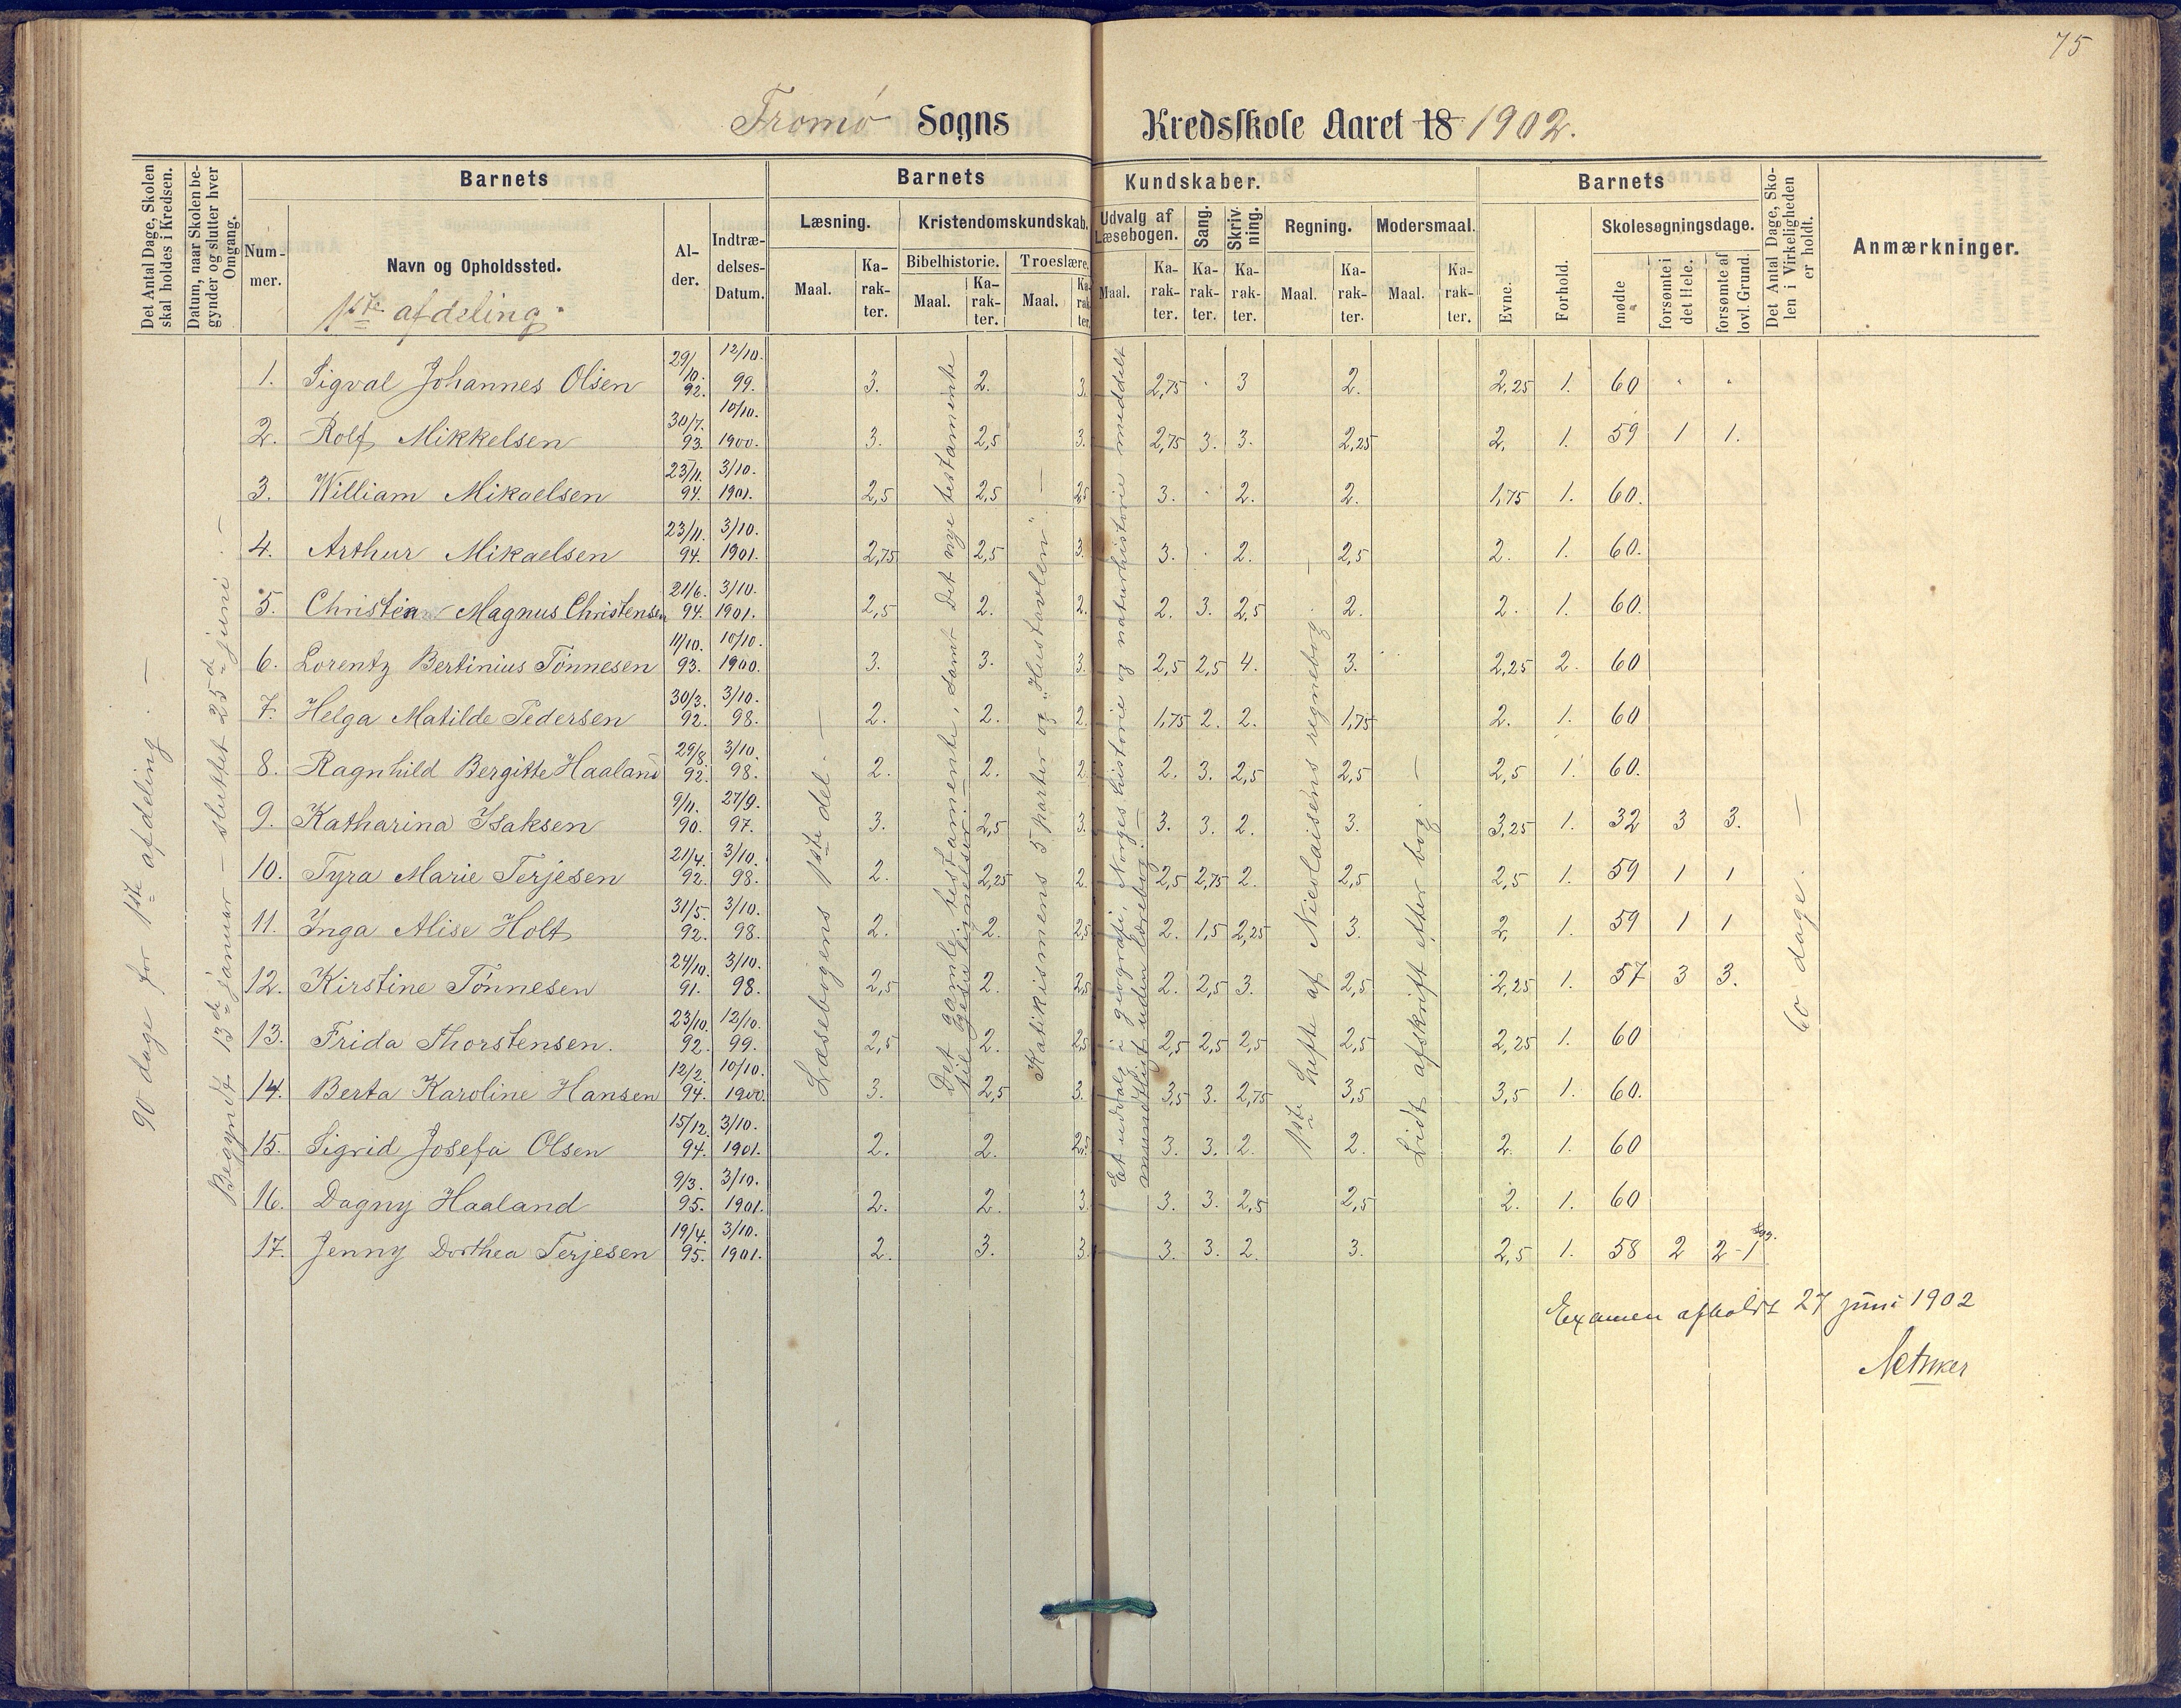 75
Tromø Sogns Kredsskole Aaret 18 1902.
Det Antal Dage, Skolen skal holdes i Kredsen.
Datum, naar Skolen begynder og slutter hver Omgang.
Barnets
Num-mer.
Navn og Opholdssted.
1ste afdeling.
Al-der.
Indtræ-delses-Datum.
Barnets Kundskaber.
Læsning.
Maal. Ka-rak-ter.
Kristendomskundskab.
Bibelhistorie. Maal. Ka-rak-ter.
Troeslære. Maal. Ka-rak-ter.
Udvalg af Læsebogen. Maal. Ka-rak-ter.
Sang. Ka-rak-ter.
Skriv-ning. Ka-rak-ter.
Regning. Maal. Ka-rak-ter.
Modersmaal. Maal. Ka-rak-ter.
Barnets
Evne. Forhold.
Skolesøgningsdage.
mødte forsømte i det Hele. forsømte af lovl. Grund.
Det Antal Dage, Sko-len i Virkeligheden er holdt.
Anmærkninger.
90 dage for 1ste afdeling. —
Begyndt 13de januar — sluttet 25de juni. —
Læsebogens 1ste del. —
Det gamle testamente, samt det nye testamente til Jesu lignelser. —
Katikismens 5 parter og "Hustavlen". —
Et udvalg i geografi, Norges historie og naturhistorie meddelt mundtligt uden lærebog. —
1ste hefte af Nicolaisens regnebog —
Lidt afskrift efter bog. —
60 dage. —
1. Sigval Johannes Olsen 29/10. 92. 12/10. 99. 3. 2. 3. 2,75 . 3 2. 2,25 1. 60 " "
2. Rolf Mikkelsen 30/7. 93. 10/10. 1900. 3. 2,5 3. 2,75 3. 3. 2,25 2. 1. 59 1 1.
3. William Mikaelsen 23/11. 94. 3/10. 1901. 2,5 2,5 2,5 3. . 2. 2. 1,75 1. 60.
4. Arthur Mikaelsen 23/11. 94. 3/10. 1901. 2,75 2,5 3. 3. . 2. 2,5 2. 1. 60.
5. Christian Magnus Christensen 21/6. 94. 3/10. 1901. 2,5 2. 2. 2. 3. 2,5 2. 2. 1. 60.
6. Lorentz Bertinius Tønnesen 11/10. 93. 10/10. 1900. 3. 3. 3. 2,5 2,5 4. 3. 2,25 2. 60
7. Helga Matilde Pedersen 30/3. 92. 3/10. 98. 2. 2. 2. 1,75 2. 2. 1,75 2. 1. 60
8. Ragnhild Bergitte Haaland 29/8. 92. 3/10. 98. 2. 2. 2. 2. 3. 2,5 2,5 2,5 1. 60.
9. Katharina Isaksen 9/11. 90. 27/9. 97. 3. 2,5 3. 3. 3. 2. 3. 3,25 1. 32 3 3.
10. Tyra Marie Terjesen 21/4. 92. 3/10. 98. 2. 2,25 2. 2,5 2,75 2. 2,5 2,5 1. 59 1 1
11. Inga Alise Holt 31/5. 92. 3/10. 98. 2. 2. 2,5 2. 1,5 2,25 3. 2. 1. 59 1 1
12. Kirstine Tønnesen 24/10. 91. 3/10. 98. 2,5 2. 2,5 2. 2,5 3. 2,5 2,25 1. 57 3 3.
13. Frida Thorstensen. 23/10. 92. 12/10. 99. 2,5 2. 2,5 2,5 2,5 2,5 2,5 2,25 1. 60
14. Berta Karoline Hansen 12/2. 94. 10/10. 1900. 3. 2,5 3. 3,5 3. 2,75 3,5 3,5 1. 60.
15. Sigrid Josefa Olsen 15/12. 94. 3/10. 1901. 2. 2. 2,5 3. 3. 2. 2. 2. 1. 60
16. Dagny Haaland 9/3. 95. 3/10. 1901. 2. 2. 3. 3. 3. 2,5 2,5 2. 1. 60
17. Jenny Dorthea Terjesen 19/4. 95. 3/10. 1901. 2. 3. 3. 3. 3. 2. 3. 2,5 1. 58 2 2 - 1
Examen afholdt 27 juni 1902